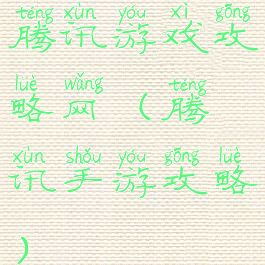 téng xùn yóu xì gōng
腾讯游戏攻
lüè wǎng téng
略网（腾
xùn shǒu yóu gōng lüè
讯手游攻略
）